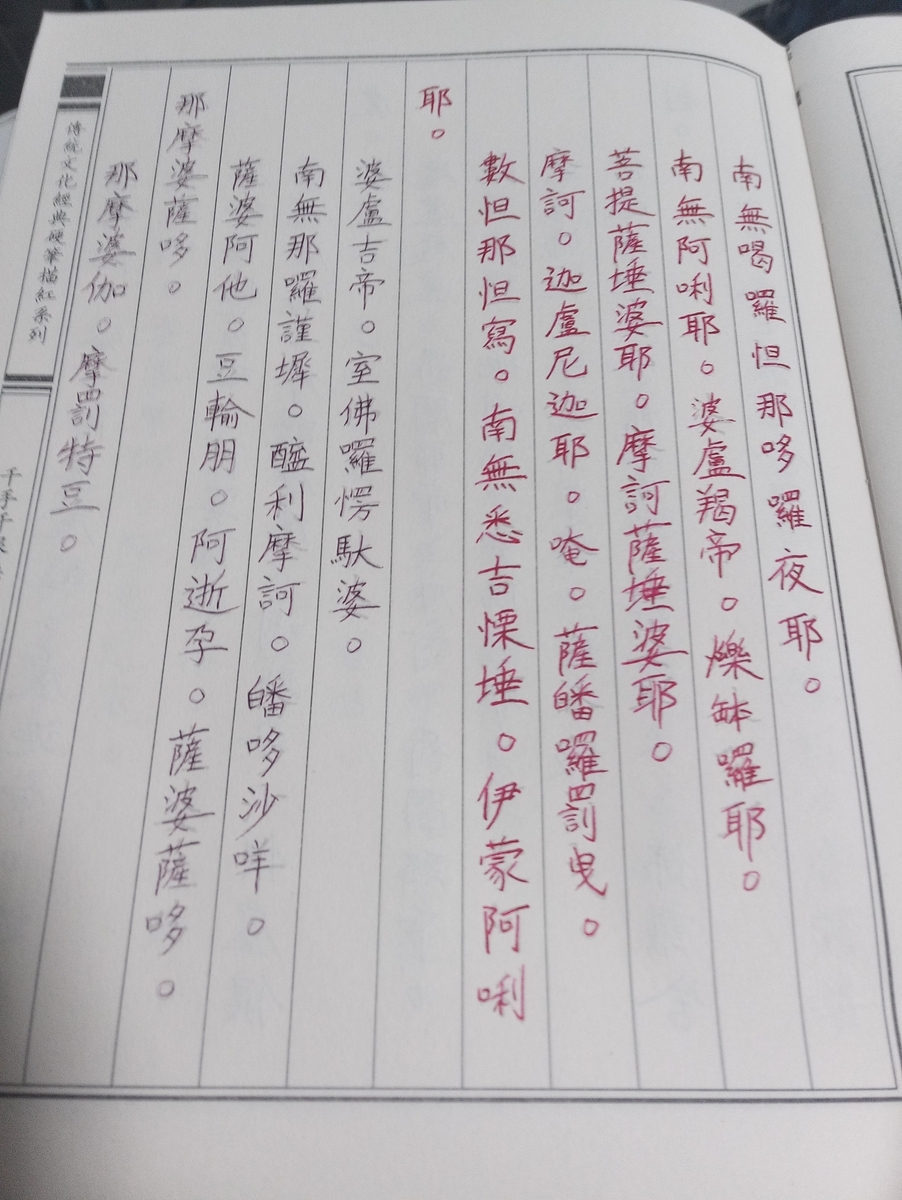 南無喝囉怛那哆囉夜耶。
南無阿唎耶。婆盧羯帝。爍缽羅耶。
菩提薩埵婆耶。摩訶薩埵婆耶。
摩訶。迦盧尼迦耶。唵。薩皤囉罰曳。
數怛那怛寫。南無悉吉慄埵。伊蒙阿唎
耶。
婆盧吉帝。室佛囉愣馱婆。
南無那囉謹墀。醯利摩訶。皤哆沙咩。
薩婆阿他。豆輸朋。阿逝孕。薩婆薩哆。
那摩婆薩哆。
那摩婆伽。摩罰特豆。
傳統文化經典硬筆描紅系列
千手千眼